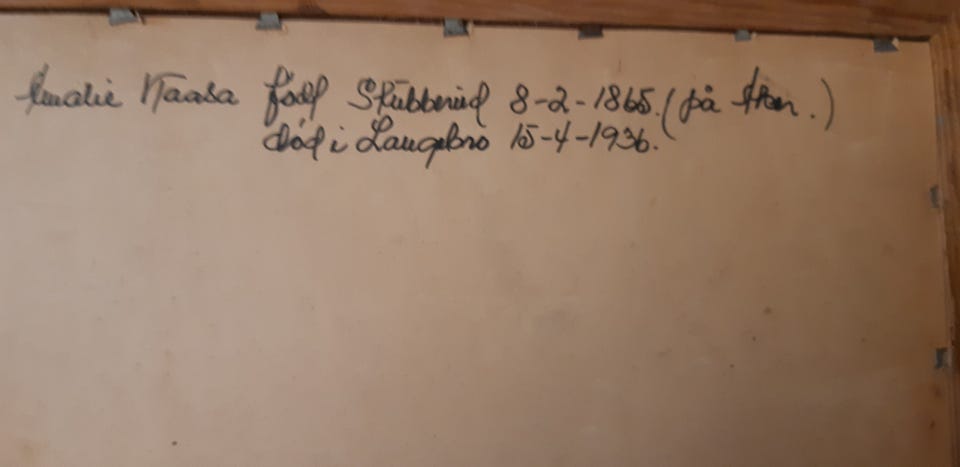 Amalie Kaasa född Stubberud 8-2-1865. (på
död i Langebro 15-4-1936.